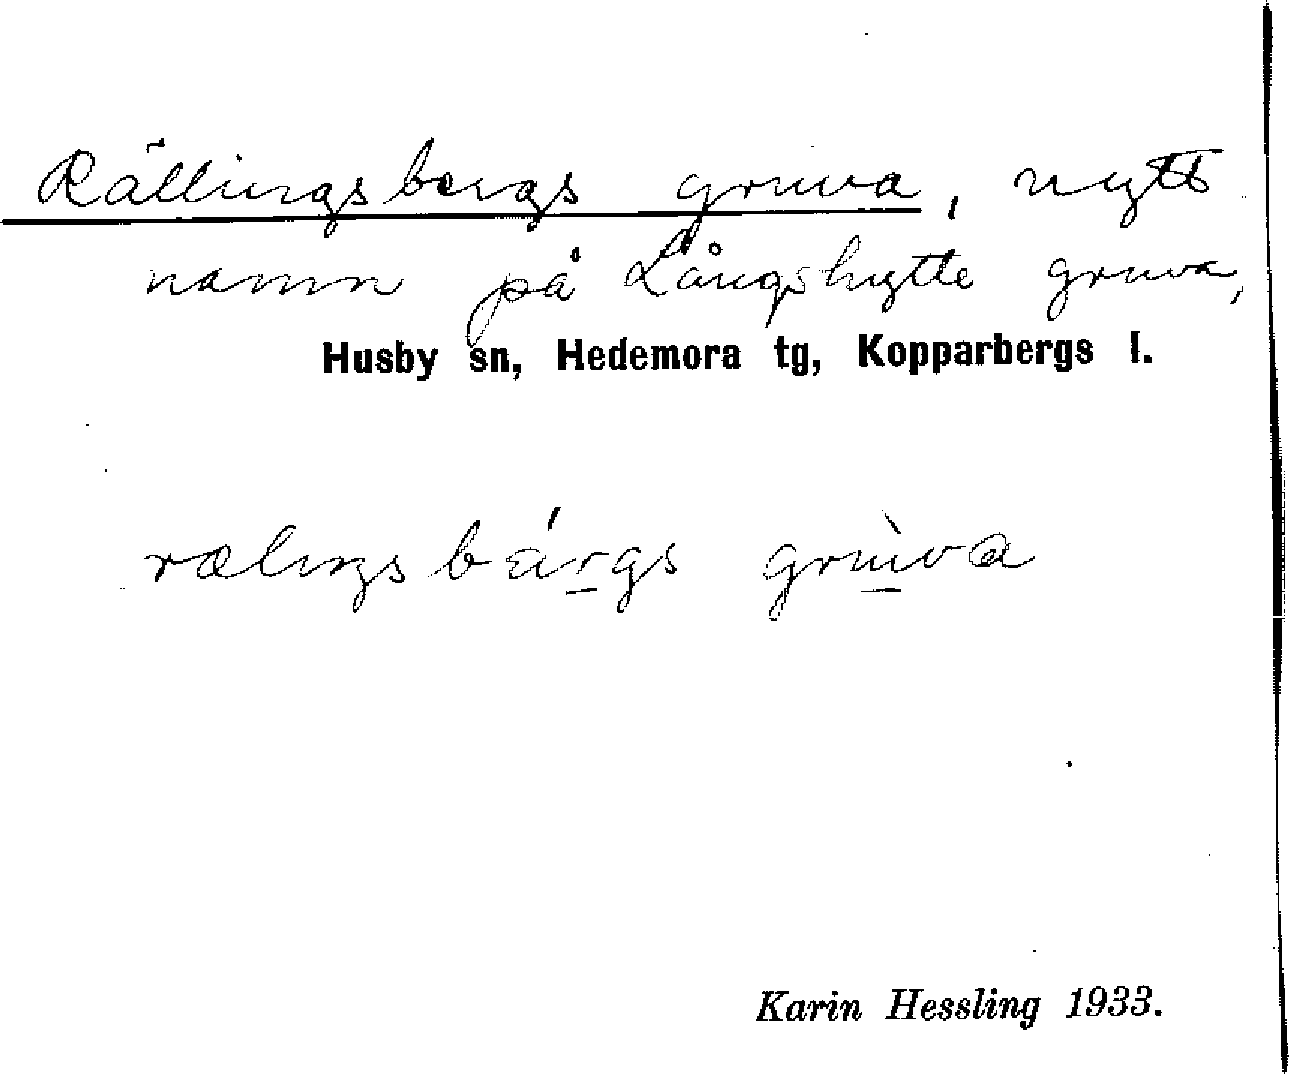 Rällingsbergs gruva, nytt
namn på Långshytte gruva,
Husby sn, Hedemora tg, Kopparbergs l.
rælıŋsbárgs grùva
Karin Hessling 1933.